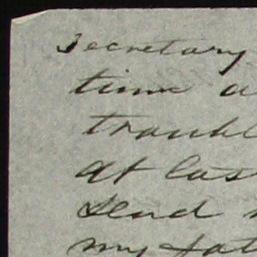 Secretary
time a
trouble
at las
send
my fat